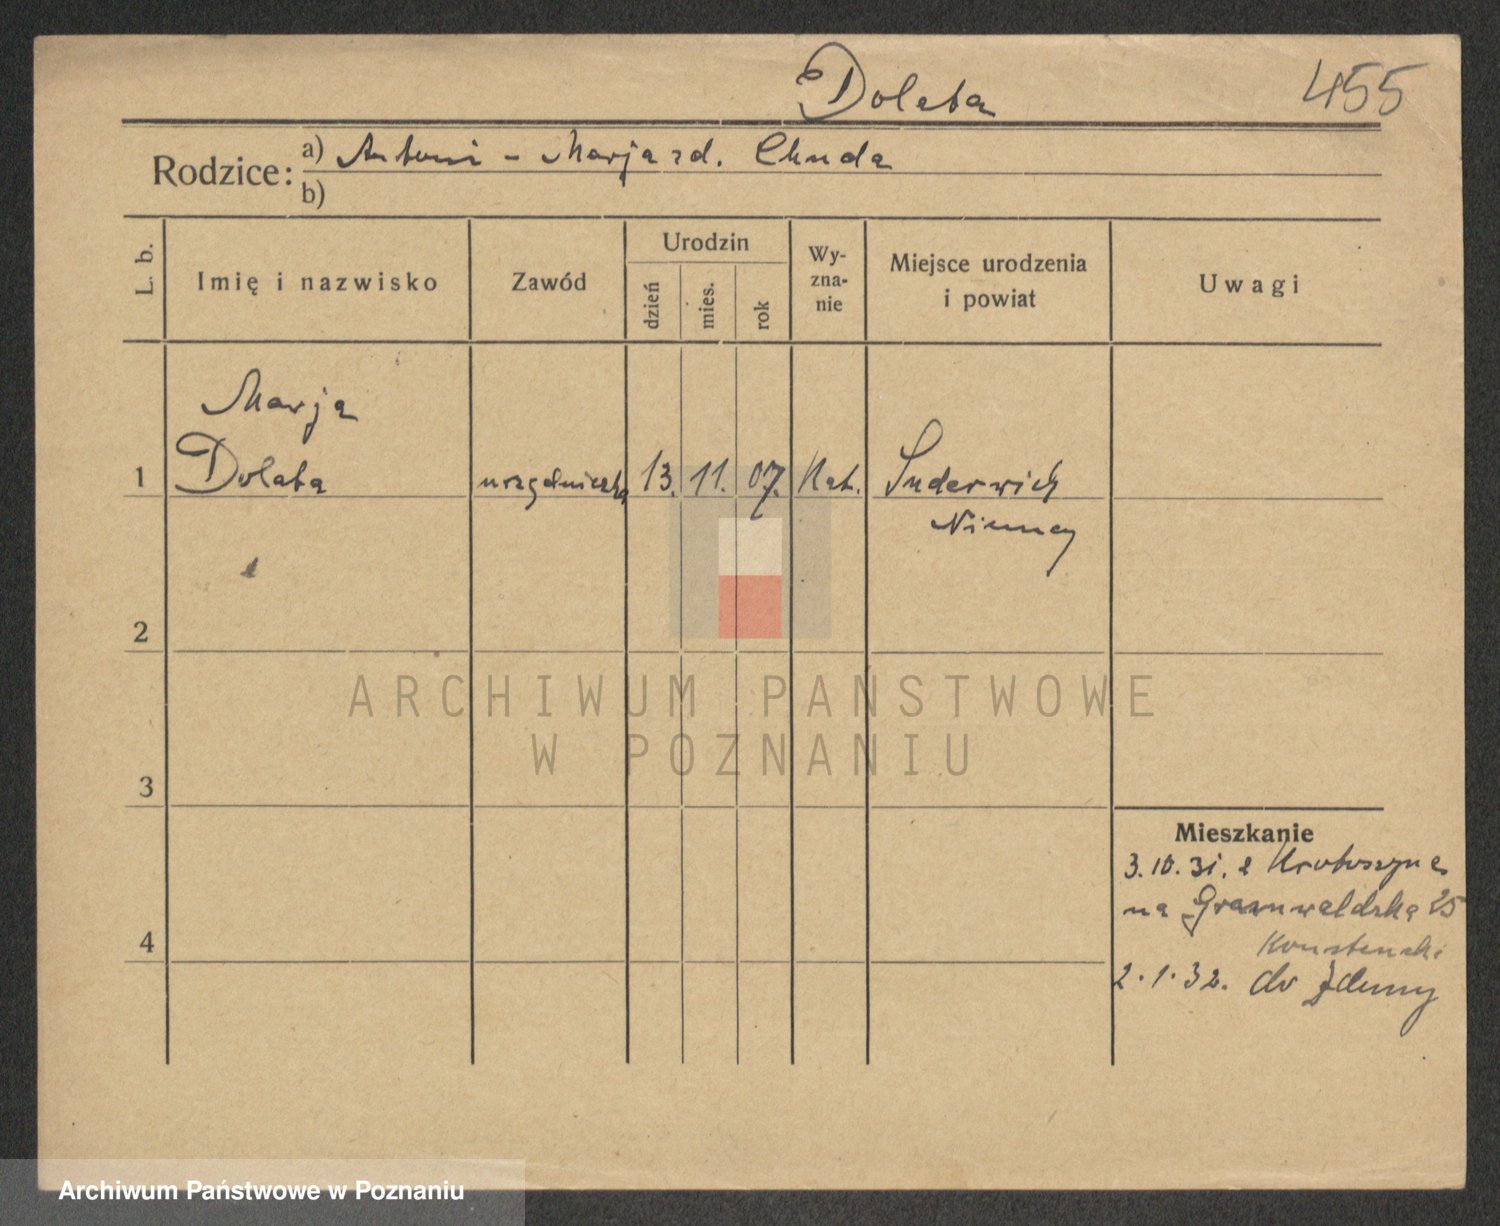 Dolata
455
Rodzice: a) Antoni - Marja zd. Chuda
b)
L. b.
Imię i nazwisko
Zawód
Urodzin
dzień
mies.
rok
Wy-
zna-
nie
Miejsce urodzenia
i powiat
Uwagi
Marja
1 Dolata urzędniczka 13. 11. 07. Kat. Suderwich
Niemcy
2
3
4
Mieszkanie
3.10.31. z Krotoszyna
na Grunwaldzką 25
2.1.32. do
ARCHIWUM PAŃSTWOWE
W POZNANIU
Archiwum Państwowe w Poznaniu